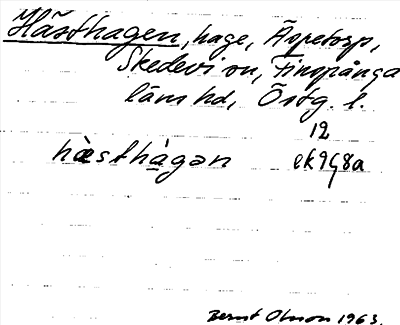 Hästhagen, hage, Äspetorp,
Skedevi sn, Finspånga
läns hd, Östg. l.
12
hæsthàgən ek9G8a
Bernt Olsson 1963.